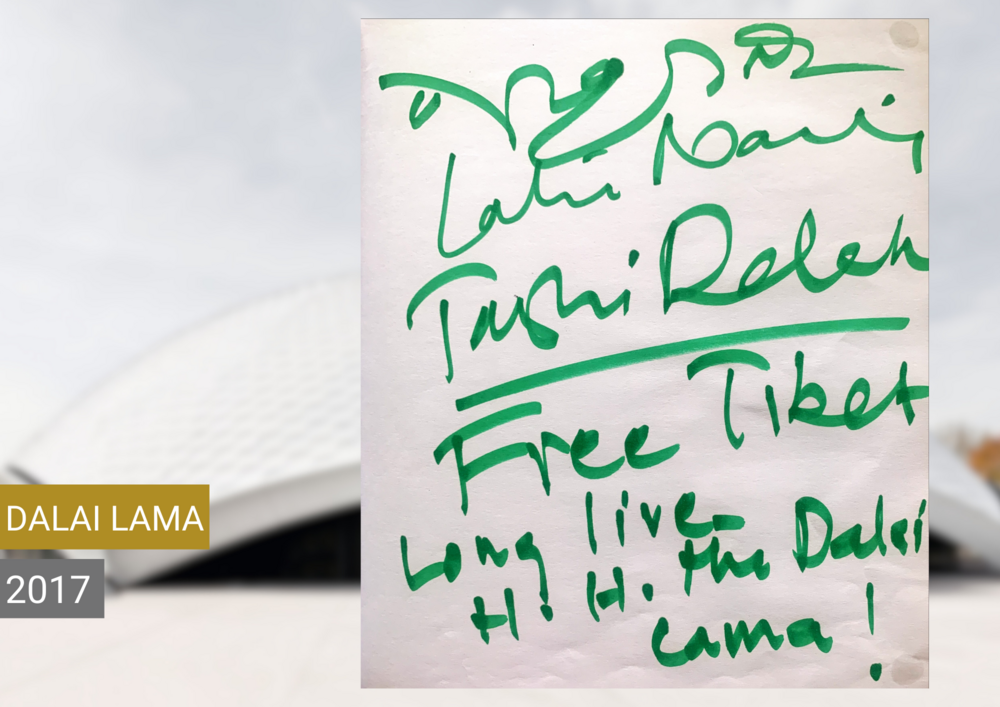 Tashi Delek
Free Tibet
Long live
H. H. the Dalai
Lama!
DALAI LAMA
2017